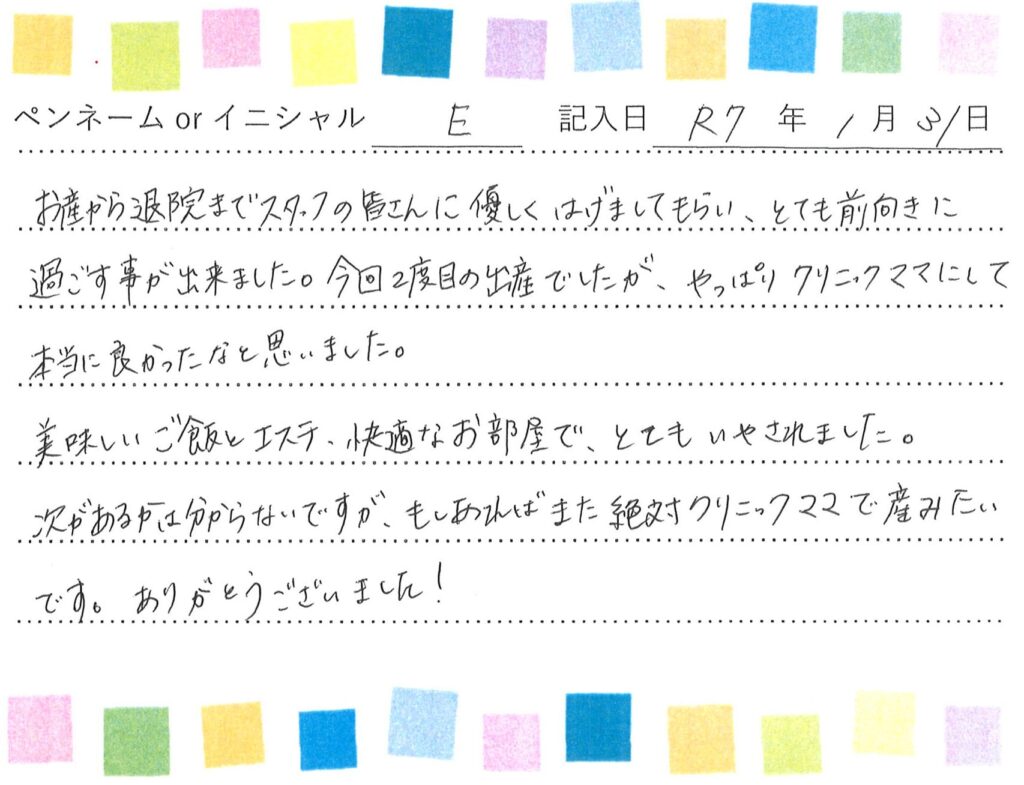 ペンネーム or イニシャル E 記入日 R7 年 1 月 31 日
お産から退院までスタッフの皆さんに優しくはげましてもらい、とても前向きに
過ごす事が出来ました。今回2度目の出産でしたが、やっぱりクリニックママにして
本当に良かったなと思いました。
美味しいご飯とエステ、快適なお部屋で、とてもいやされました。
次があるかは分からないですが、もしあればまた絶対クリニックママで産みたい
です。ありがとうございました!